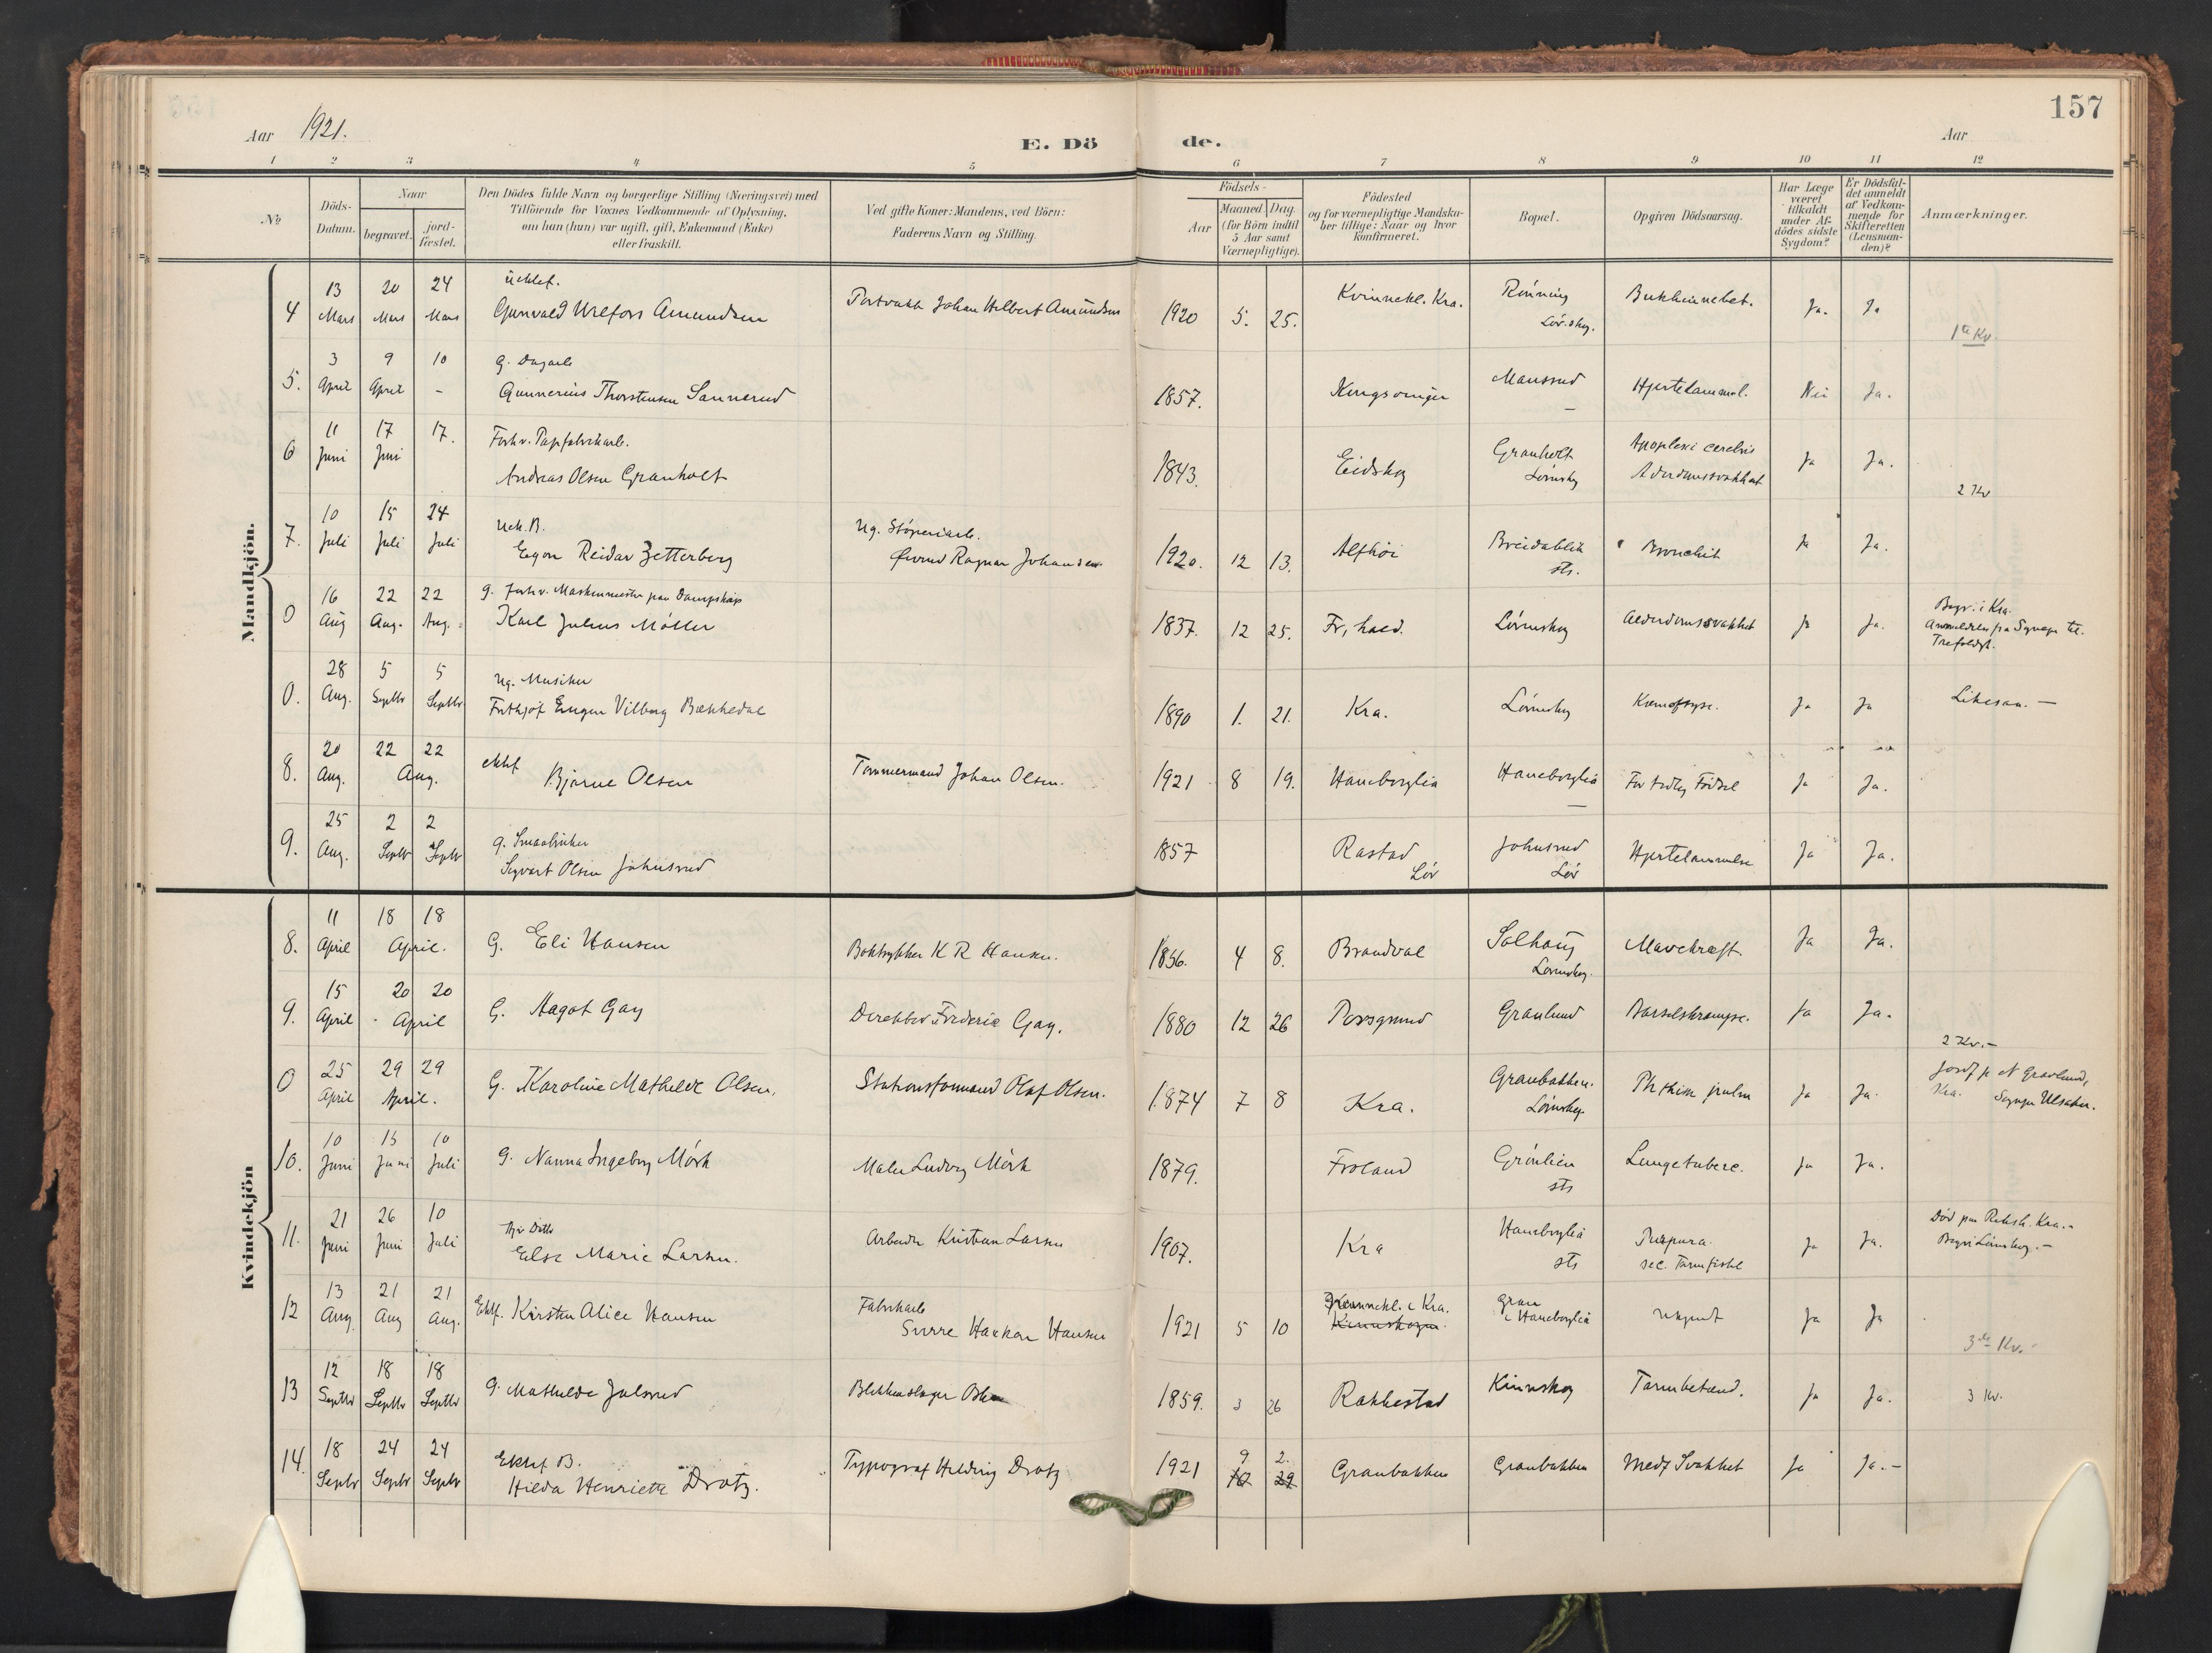 157
Aar 1921.
E. Dö de.
Aar
1 2 3 4 5 6 7 8 9 10 11 12
№
Döds-Datum.
Naar
begravet.
jord-fæstet.
Den Dödes fulde Navn og borgerlige Stilling (Næringsvei) med
Tilföiende for Voxnes Vedkommende af Oplysning,
om han (hun) var ugift, gift, Enkemand (Enke)
eller fraskilt.
Ved gifte Koner: Mandens, ved Börn:
Faderens Navn og Stilling.
Födsels-
Aar
Maaned. Dag.
(for Börn indtil
5 Aar samt
Værnepligtige).
Födested
og for værnepligtige Mandska-
ber tillige: Naar og hvor
Konfirmeret.
Bopæl.
Opgiven Dödsaarsag.
Har Læge
været
tilkaldt
under Af-
dödes sidste
Sygdom?
Er Dödsfal-
det anmeldt
af Vedkom-
mende for
Skifteretten
(Lensman-
den)?
Anmærkninger.
Mandkjön.
13 20 24 uektef.
4 Mars Mars Mars Gunvald Amundsen Johan Hilbert Amundsen 1920 5. 25. Kvinnekl. Kra. Rönning Lör.skog. Ja. Ja
1ste Kv
3 9 10 g.
5. April April - Gunnerius Thorstensen Sannerud 1857. Kongsvinger Mausrud - Hjertelammel. Nei Ja.
11 17 17. Forhv. Papfabrikarb.
6 Juni Juni Andreas Olsen Granholt 1843. Eidskog Granholt Lörenskog Apoplexi cerebri Alderdomssvakhet Ja Ja.
2 Kv
10 15 24 Uek. B. Ug. Störeriarb.
7. Juli Juli Juli Egon Reidar Zetterberg Øivind Ragnar Johansen 1920. 12 13. Breidablik sts. Bronchit Ja Ja.
16 22 22 g. Forhv. Maskinmester paa Dampskip
0 Aug Aug. Aug. Karl Julius Möller 1837. 12 25. Fr.hald. Lörenskog Alderdomssvakhet Ja Ja. Begr. i Kra.
Trefoldigh.
28 5 5 Ug. Musiker
0. Aug. Septbr Septbr Frithjof Eugen Vilberg Bækkedal 1890 1. 21. Kra. Lörenskog Ja Ja
20 22 22 ektef
8. Aug. Aug. Bjarne Olsen Tömmermand Johan Olsen. 1921 8 19. Haneborglia Haneborglia - For tidlig Födsel Ja Ja.
25 2 2 g. Smaabruker
9. Aug. Septbr Septbr Sigvart Olsen Johnsrud 1857 Rastad Lör Johnsrud Lör Hjertelammelse Ja Ja.
Kvindekjön
11 18 18
8. April April. G. Eli Hansen Boktrykker K R Hansen. 1856. 4 8. Brandval Solhaug Lörenskog. Mavekræft. Ja Ja.
15 20 20
9. April April G. Aagot Gay Direktör Frederic Gay. 1880 12 26 Porsgrund Granlund Barselskrampe. Ja Ja.
2 Kv.-
25 29 29
0 April April. G. Karoline Mathilde Olsen, Stationsformand Olaf Olsen. 1874 7 8 Kra. Granbakken. Lörenskog. Phthisis pulm Ja Ja. Jordf p. N Gravlund,
Kra.
10 15 10
10. Juni Juni Juli g. Nanna Ingeborg Mörk Maler Ludvig Mörk 1879. Froland Grönlien sts Lungetuberc. Ja Ja.
21 26 10
11. Juni Juni Juli Else Marie Larsen. Arbeider Kristian Larsen 1907. Kra Haneborglia sts Purpura. sec. Ja Ja. Död paa Riksh. Kra.-
Begr. i Lörenskog.-
13 21 21
12 Aug. Aug Aug. Ektef. Kirsten Alice Hansen Fabrikarb Haakon Hansen 1921 5 10 Kvinnekl. i Kra. i Haneborglia ukjent Ja Ja
3die Kv.
12 18 18
13 Septbr Septbr Septbr g. Mathilde Julsrud Blikkenslager 1859. 3 26 Rakkestad Kinnskog Tarmbetænd. Ja Ja. 3 Kv.
18 24 24 Ektef B. 9 2.
14. Septbr Septbr Septbr Hilda Henriette Drotz. Typograf Helding Drotz 1921 10 29 Granbakken Granbakken Medf Svakhet Ja Ja.-